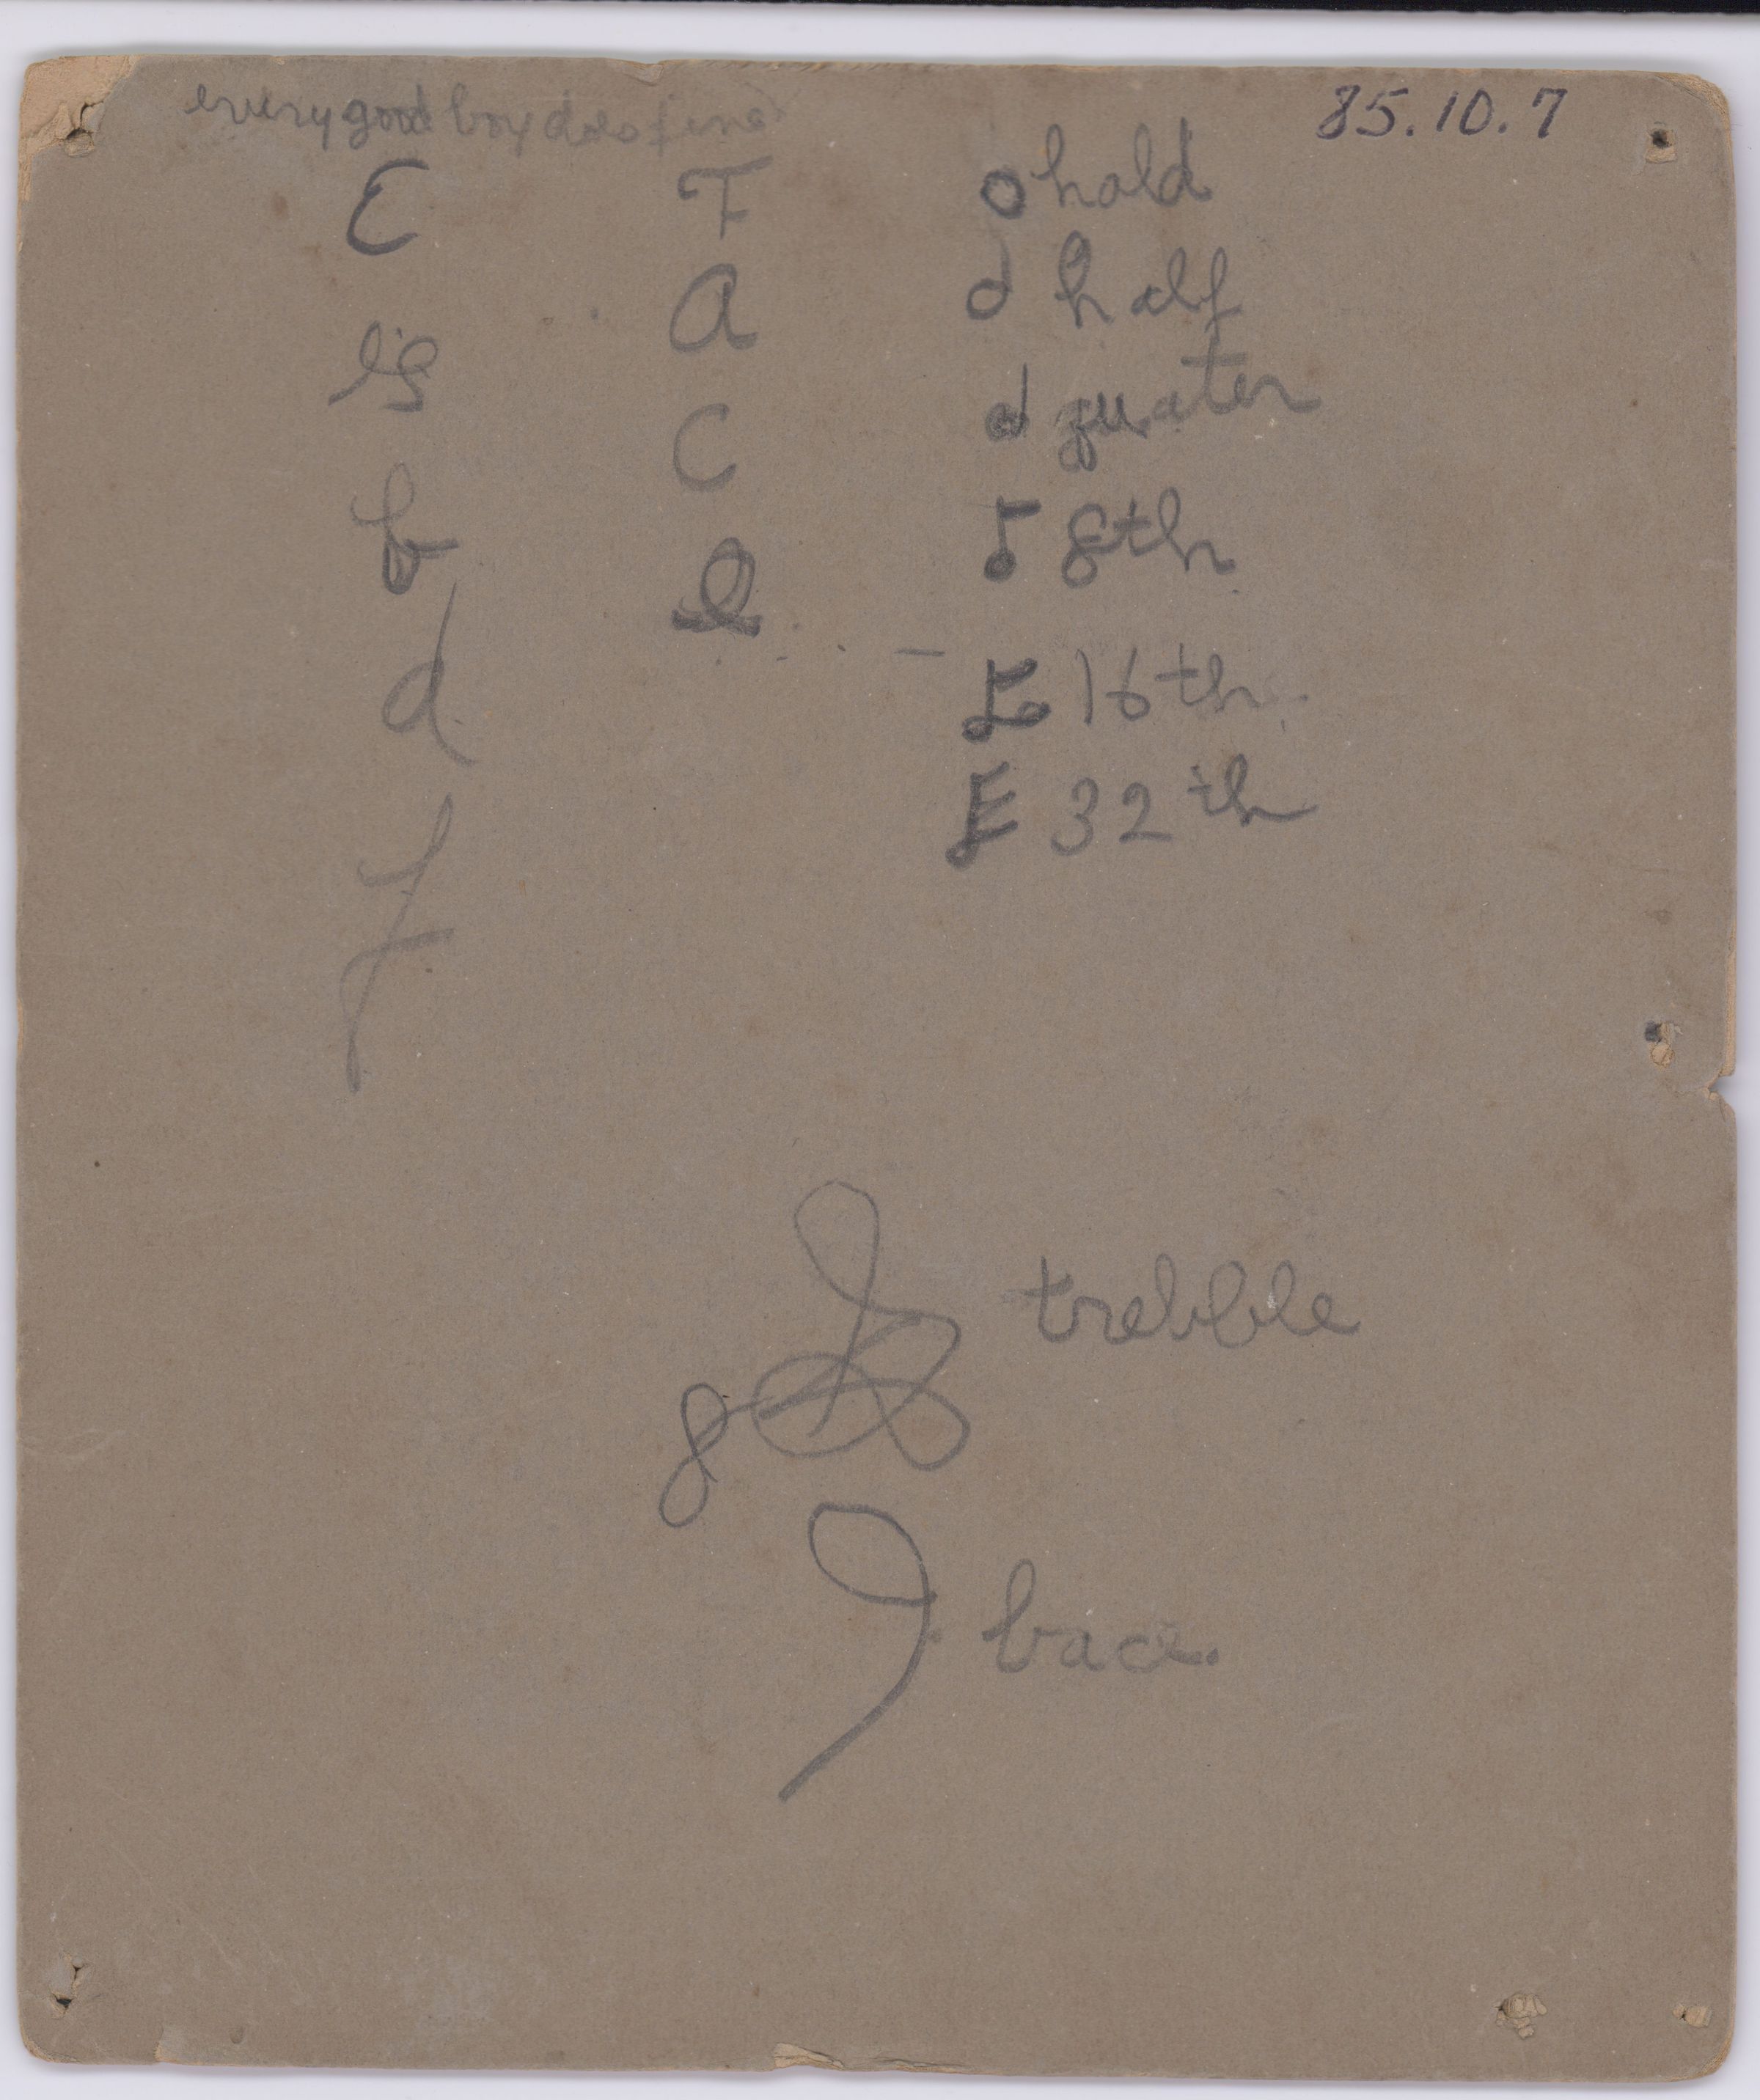 every good boy does fine
85.10.7
E
g
b
d
f
F
A
C
e
hold
half
quater
8th
16th
32th
trebble
bace.